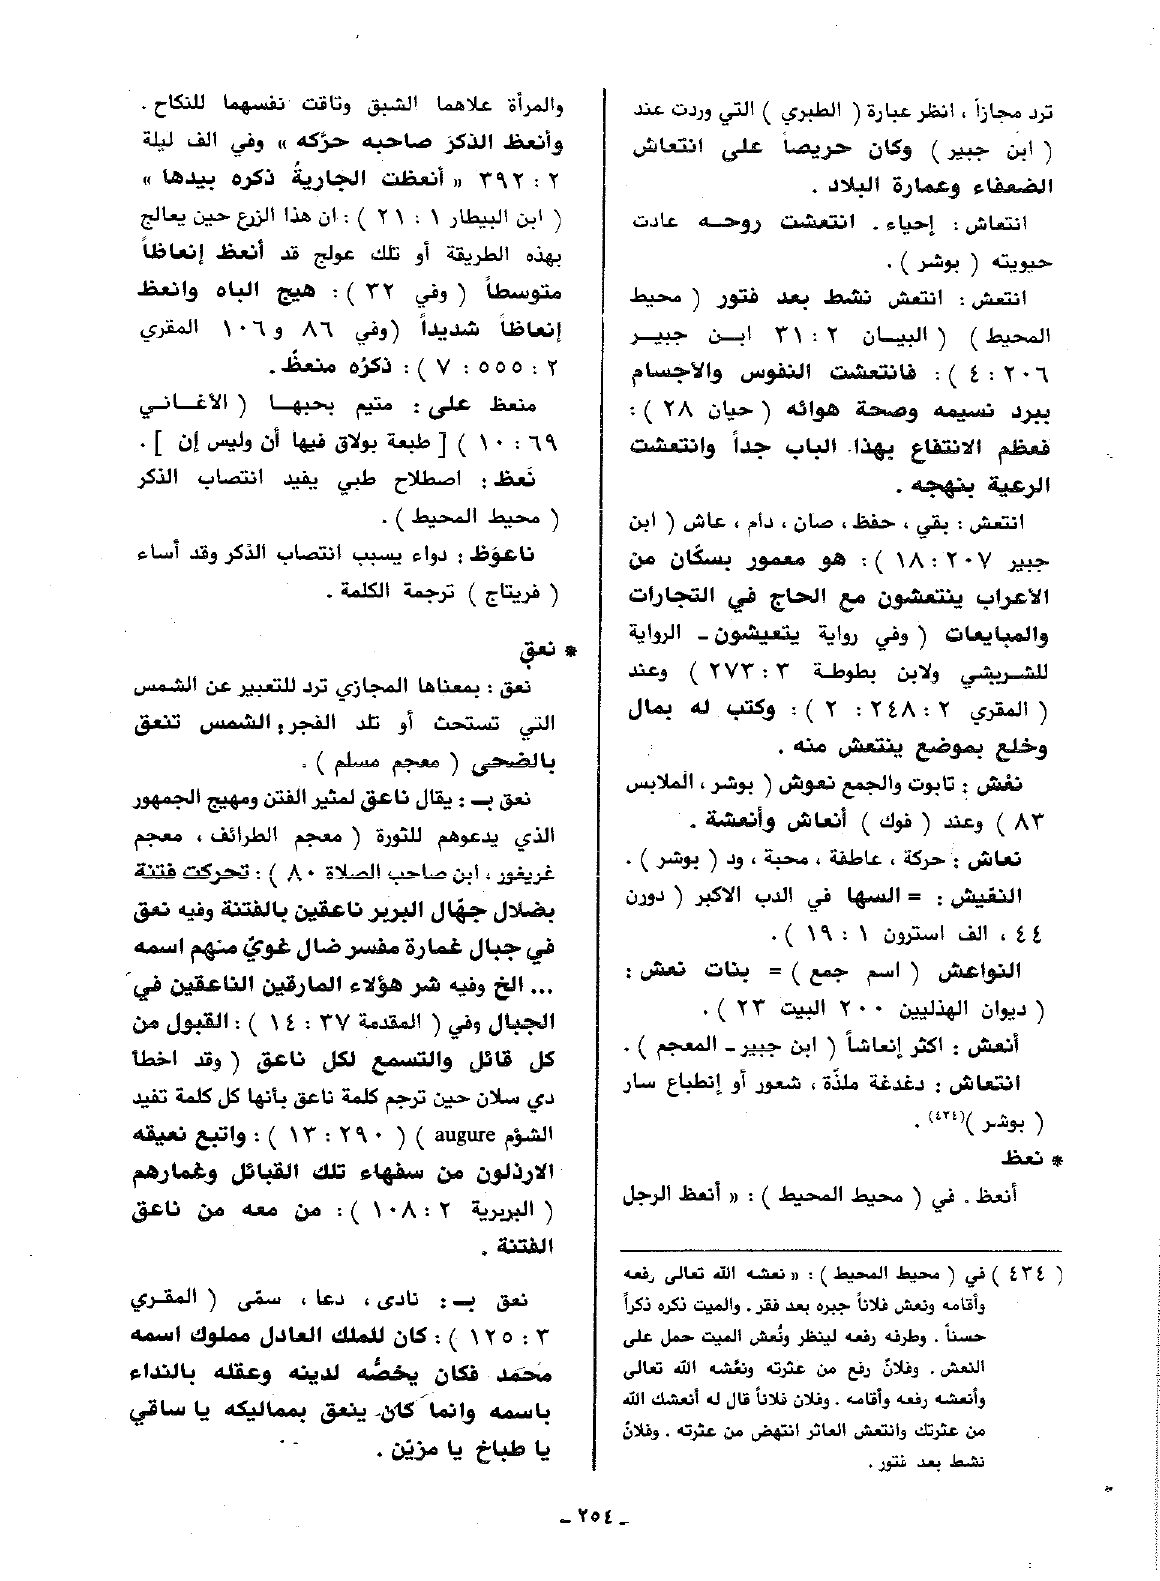 ترد مجازاً ، انظر عبارة ( الطبري ) التي وردت عند
( ابن جبير ) وكان حريصاً على انتعاش
الضعفاء وعمارة البلاد .
انتعاش : إحياء . انتعشت روحه عادت
حيويته ( بوشر ) .
انتعش : انتعش نشط بعد فتور ( محيط
المحيط ) ( البيان ٢ : ٣١ ابن جبير
٢٠٦ : ٤ ) : فانتعشت النفوس والأجسام
ببرد نسيمه وصحة هوائه ( حيان ٢٨ ) :
فعظم الانتفاع بهذا الباب جداً وانتعشت
الرعية بنهجه .
انتعش : بقي ، حفظ ، صان ، دام ، عاش ( ابن
جبير ٢٠٧ : ١٨ ) : هو معمور بسكّان من
الأعراب ينتعشون مع الحاج في التجارات
والمبايعات ( وفي رواية يتعيشون - الرواية
للشريشي ولابن بطوطة ٣ : ٢٧٣ ) وعند
( المقري ٢ : ٢٤٨ : ٢ ) : وكتب له بمال
وخلع بموضع ينتعش منه .
نَعْش : تابوت والجمع نعوش ( بوشر ، الملابس
٨٣ ) وعند ( فوك ) أنعاش وأنعشة .
نعاش : حركة ، عاطفة ، محبة ، ود ( بوشر ) .
النقيش : = السها في الدب الاكبر ( دورن
٤٤ ، الف استرون ١ : ١٩ ) .
النواعش ( اسم جمع ) = بنات نعش :
( ديوان الهذليين ٢٠٠ البيت ٢٣ ) .
أنعش : اكثر إنعاشاً ( ابن جبير - المعجم ) .
انتعاش : دغدغة ملذّة ، شعور أو إنطباع سار
( بوشر )(٤٣٤) .
* نعظ
أنعظ . في ( محيط المحيط ) : « أنعظ الرجل
( ٤٣٤ ) في ( محيط المحيط ) : « نعشه الله تعالى رفعه
وأقامه ونعش فلاناً جبره بعد فقر . والميت ذكره ذكراً
حسناً . وطرفه رفعه لينظر ونُعش الميت حمل على
النعش . وفلانٌ رفع من عثرته ونعّشه الله تعالى
وأنعشه رفعه وأقامه . وفلان فلاناً قال له أنعشك الله
من عثرتك وانتعش العاثر انتهض من عثرته . وفلانٌ
نشط بعد فتور .
والمرأة علاهما الشبق وتاقت نفسهما للنكاح .
وأنعظ الذكرَ صاحبه حرّكه » وفي الف ليلة
٢ : ٣٩٢ « أنعظت الجاريةُ ذكره بيدها »
( ابن البيطار ١ : ٢١ ) : ان هذا الزرع حين يعالج
بهذه الطريقة أو تلك عولج قد أنعظ إنعاظاً
متوسطاً ( وفي ٣٢ ) : هيج الباه وانعظ
إنعاظاً شديداً (وفي ٨٦ و ١٠٦ المقري
٢ : ٥٥٥ : ٧ ) : ذكرُه منعظٌ .
منعظ على : متيم بحبها ( الأغاني
٦٩ : ١٠ ) [ طبعة بولاق فيها أن وليس إن ] .
نَعظ : اصطلاح طبي يفيد انتصاب الذكر
( محيط المحيط ) .
ناعوظ : دواء يسبب انتصاب الذكر وقد أساء
( فريتاج ) ترجمة الكلمة .
* نعق
نعق : بمعناها المجازي ترد للتعبير عن الشمس
التي تستحث أو تلد الفجر : الشمس تنعق
بالضحى ( معجم مسلم ) .
نعق بـ : يقال ناعق لمثير الفتن ومهيج الجمهور
الذي يدعوهم للثورة ( معجم الطرائف ، معجم
غريغور ، ابن صاحب الصلاة ٨٠ ) : تحركت فتنة
بضلال جهّال البربر ناعقين بالفتنة وفيه نعق
في جبال غمارة مفسر ضال غويّ منهم اسمه
... الخ وفيه شر هؤلاء المارقين الناعقين في
الجبال وفي ( المقدمة ٣٧ : ١٤ ) : القبول من
كل قائل والتسمع لكل ناعق ( وقد اخطأ
دي سلان حين ترجم كلمة ناعق بأنها كل كلمة تفيد
الشؤم augure ) ( ٢٩٠ : ١٣ ) : واتبع نعيقه
الارذلون من سفهاء تلك القبائل وغمارهم
( البربرية ٢ : ١٠٨ ) : من معه من ناعق
الفتنة .
نعق بـ : نادى ، دعا ، سمّى ( المقري
٣ : ١٢٥ ) : كان للملك العادل مملوك اسمه
محمد فكان يخصُّه لدينه وعقله بالنداء
باسمه وانما كان ينعق بمماليكه يا ساقي
يا طباخ يا مزيّن .
- ٢٥٤ -